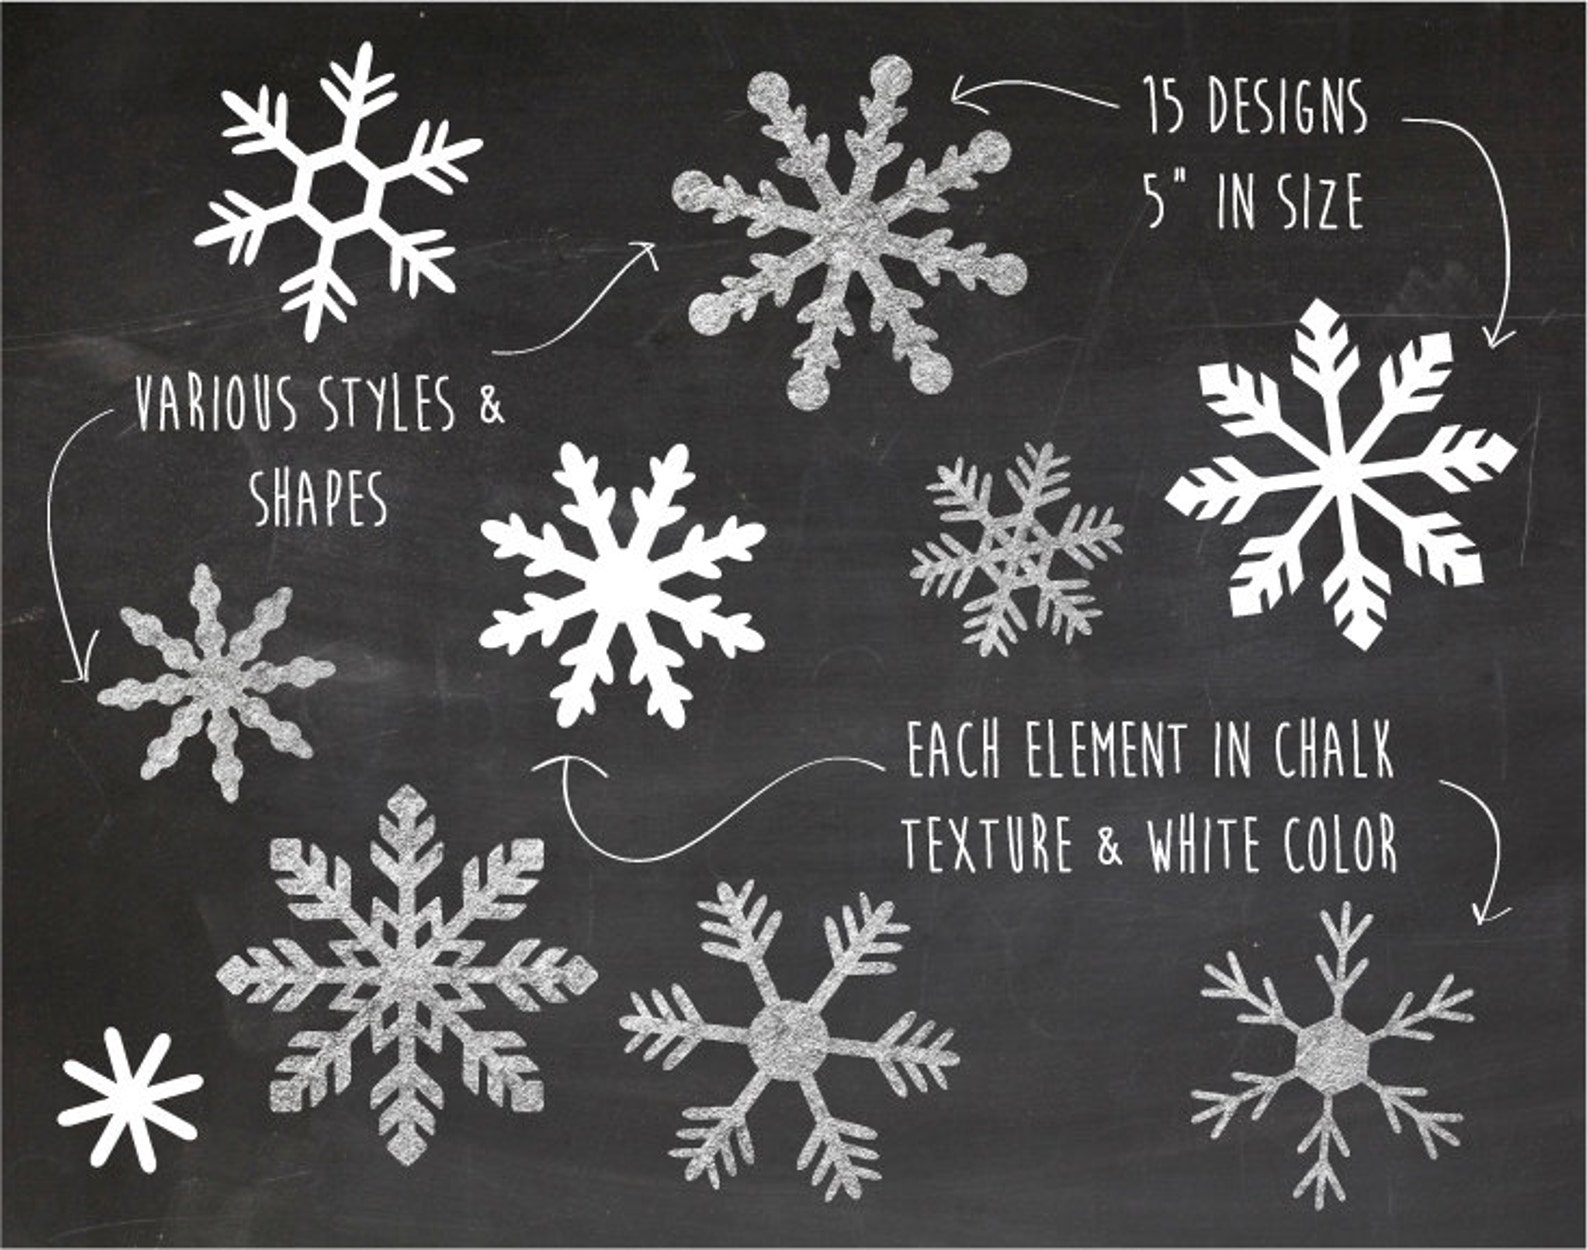 15 DESIGNS
5" IN SIZE
VARIOUS STYLES &
SHAPES
EACH ELEMENT IN CHALK
TEXTURE & WHITE COLOR